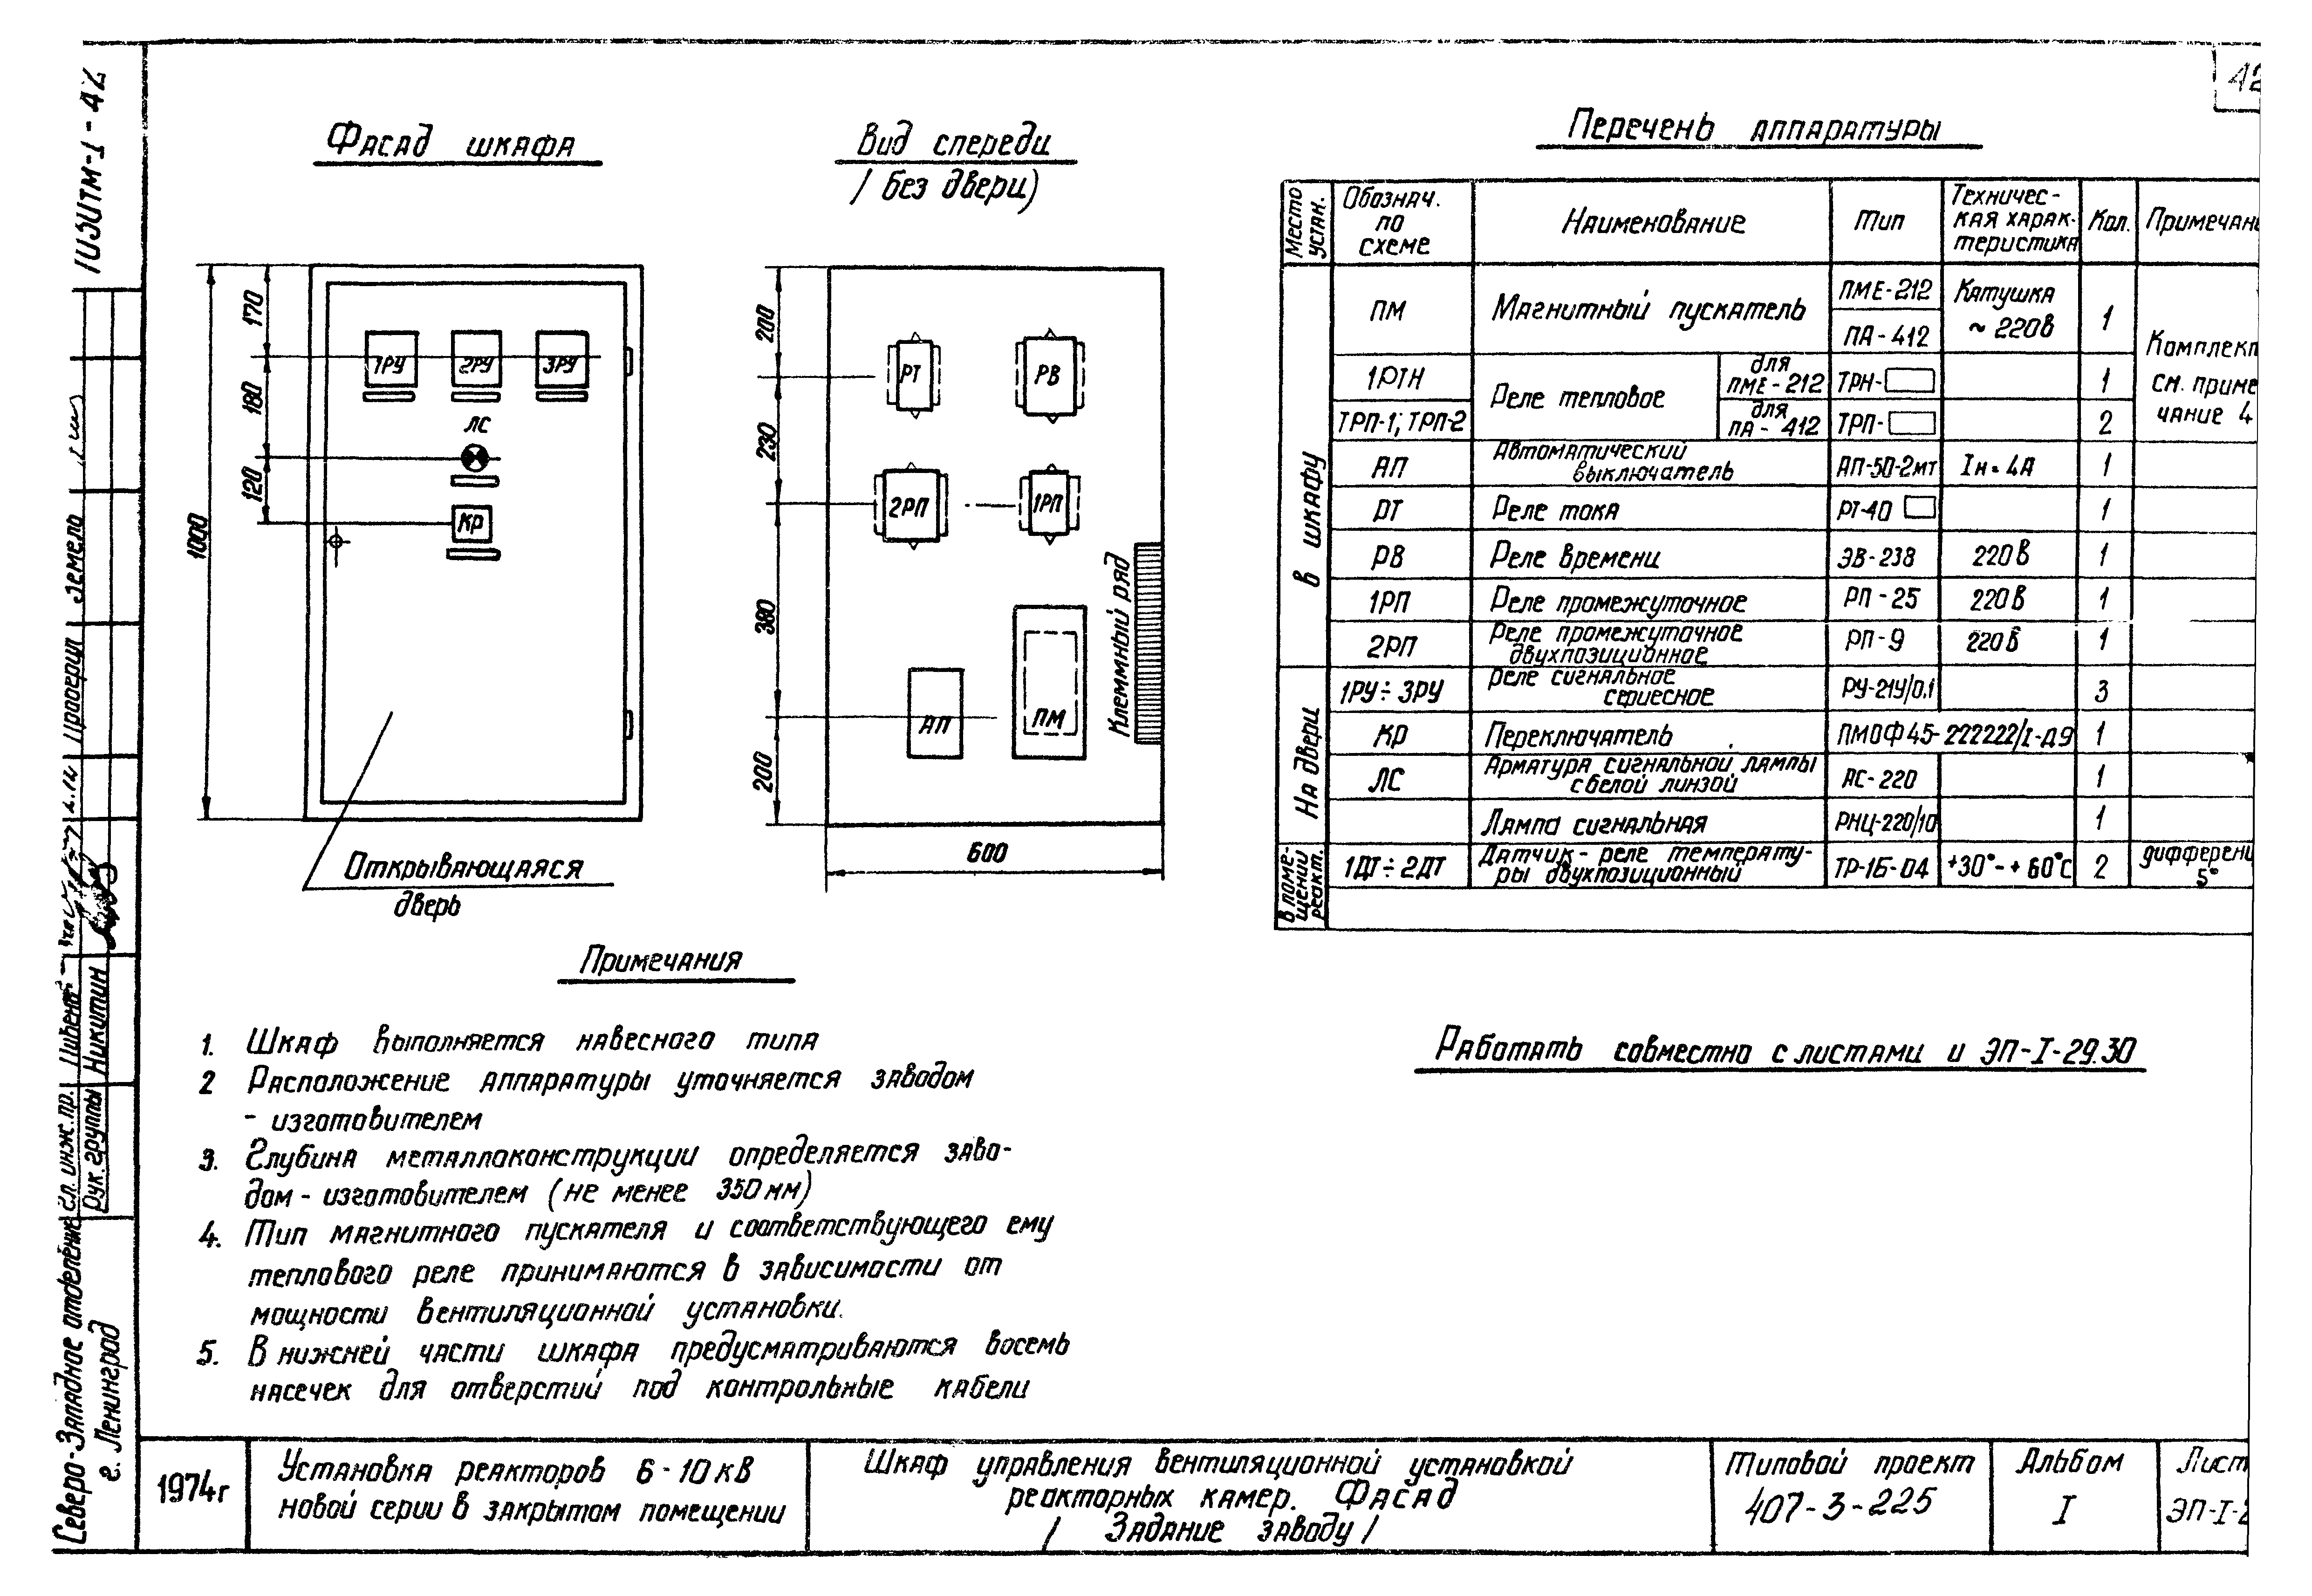 42
Фасад шкафа
170
180
120
1000
1РУ
2РУ
3РУ
ЛС
КР
Открывающаяся
дверь
Вид спереди
/ без двери)
200
230
380
200
600
РТ
РВ
2РП
1РП
АП
ПМ
Клеммный ряд
Перечень аппаратуры
Место устан.
Обознач. по схеме
Наименование
Тип
Техничес-
кая харак-
теристика
Кол.
Примечан
В шкафу
ПМ Магнитный пускатель ПМЕ-212 Катушка 1
ПА-412 ~ 220в
Комплект
см. приме
чание 4
1РТН Реле тепловое для ПМЕ-212 ТРН- 1
ТРП-1; ТРП-2 для ПА-412 ТРП- 2
АП Автоматический выключатель АП-50-2мт Iн=4А 1
РТ Реле тока РТ-40 1
РВ Реле времени ЭВ-238 220в 1
1РП Реле промежуточное РП-25 220в 1
2РП Реле промежуточное двухпозиционное РП-9 220в 1
На двери
1РУ÷3РУ Реле сигнальное сериесное РУ-21У/0.1 3
КР Переключатель ПМОФ45-222222/I-Д9 1
ЛС Арматура сигнальной лампы с белой линзой АС-220 1
Лампа сигнальная РНЦ-220/10 1
В поме-
щении
реакт.
1ДТ÷2ДТ Датчик-реле температу-
ры двухпозиционный ТР-1Б-04 +30°-+60°С 2 дифферени
5°
Примечания
1. Шкаф выполняется навесного типа
2 Расположение аппаратуры уточняется заводом
- изготовителем
3. Глубина металлоконструкции определяется заво-
дом - изготовителем (не менее 350мм)
4. Тип магнитного пускателя и соответствующего ему
теплового реле принимаются в зависимости от
мощности вентиляционной установки.
5. В нижней части шкафа предусматриваются восемь
насечек для отверстий под контрольные кабели
Работать совместно с листами и ЭП-I-29.30
1974г
Установка реакторов 6-10кВ
новой серии в закрытом помещении
Шкаф управления вентиляционной установкой
реакторных камер. Фасад
/ Задание заводу /
Типовой проект
407-3-225
Альбом
I
Лист
ЭП-I-2
Северо-Западное отделение
г. Ленинград
Гл. инж. пр.
Рук. группы Никитин
Проверил Земело